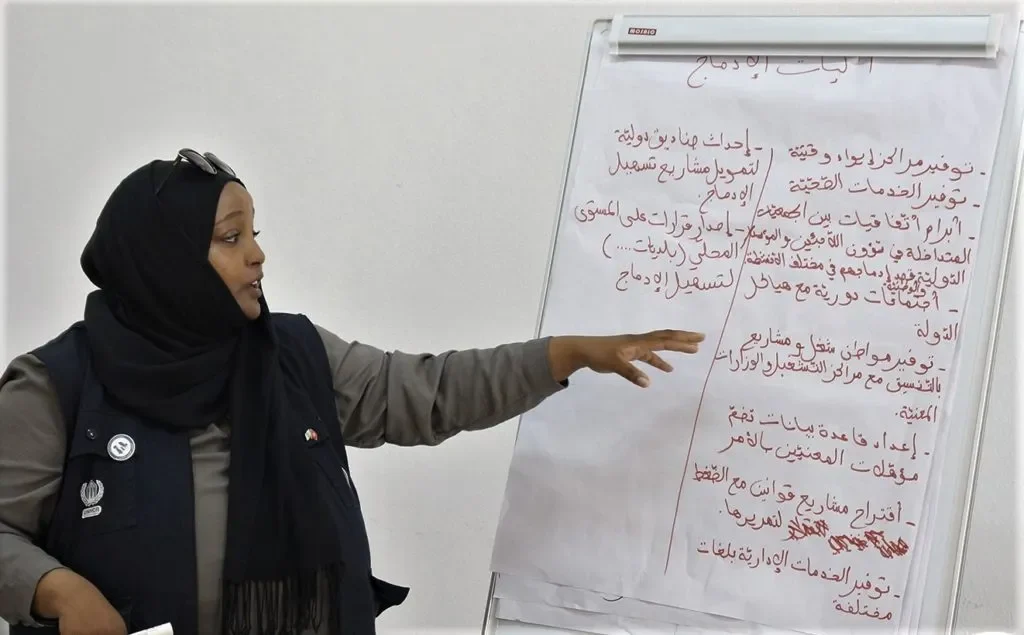 آليات الإدماج
- توفير مراكز إيواء وقتية
- توفير الخدمات الصحّيّة
- أبرام أتفاقيات بين الجمعيات
المتداخلة في شؤون اللاجئين و
الدوليّة قصد إدماجهم في مختلف الأنشطة
والوطنية
- أتفاقات دوريّة مع هياكل
الدولة
- توفير مواطن شغل و مشاريع
بالتنسيق مع مراكز التشغيل والوزارات
المعنيّة.
- إعداد قاعدة بيانات تضمّ
مؤهّلات المعنيّين بالأمر
- أقتراح مشاريع قوانين مع الضّغط
لتمريرها.
- توفير الخدمات الإداريّة بلغات
مختلفة
- إحداث صناديق دوليّة
لتمويل مشاريع تسهيل
الإدماج.
- إصدار قرارات على المستوى
المحلّي (بلديات....)
لتسهيل الإدماج
UNHCR